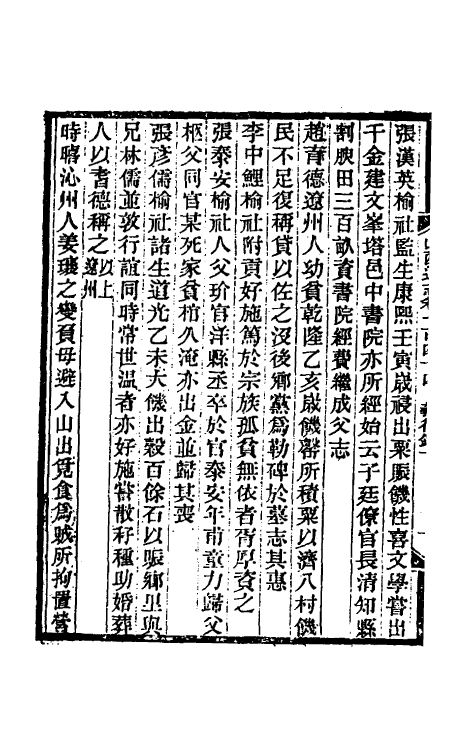 張漢英榆社監生康熙壬寅歲祲出粟賑饑性喜文學嘗出
千金建文峯塔邑中書院亦所經始云子廷僚官長清知縣
割腴田三百畝資書院經費繼成父志
趙育德遼州人幼貧乾隆乙亥歲饑罄所積粟以濟八村饑
民不足復稱貸以佐之沒後鄉黨爲勒碑於墓志其惠
李中鯉榆社附貢好施篤於宗族孤貧無依者胥厚資之
張泰安榆社人父玠官洋縣丞卒於官泰安年甫童力歸父
柩父同官某死家貧棺久淹亦出金並歸其喪
張彥儒榆社諸生道光乙未大饑出穀百餘石以賑鄉里與
兄林儒並敦行誼同時常世温者亦好施嘗散籽種助婚葬
人以耆德稱之以上遼州
時暿沁州人姜瓖之變負母避入山出覓食爲賊所拘置營